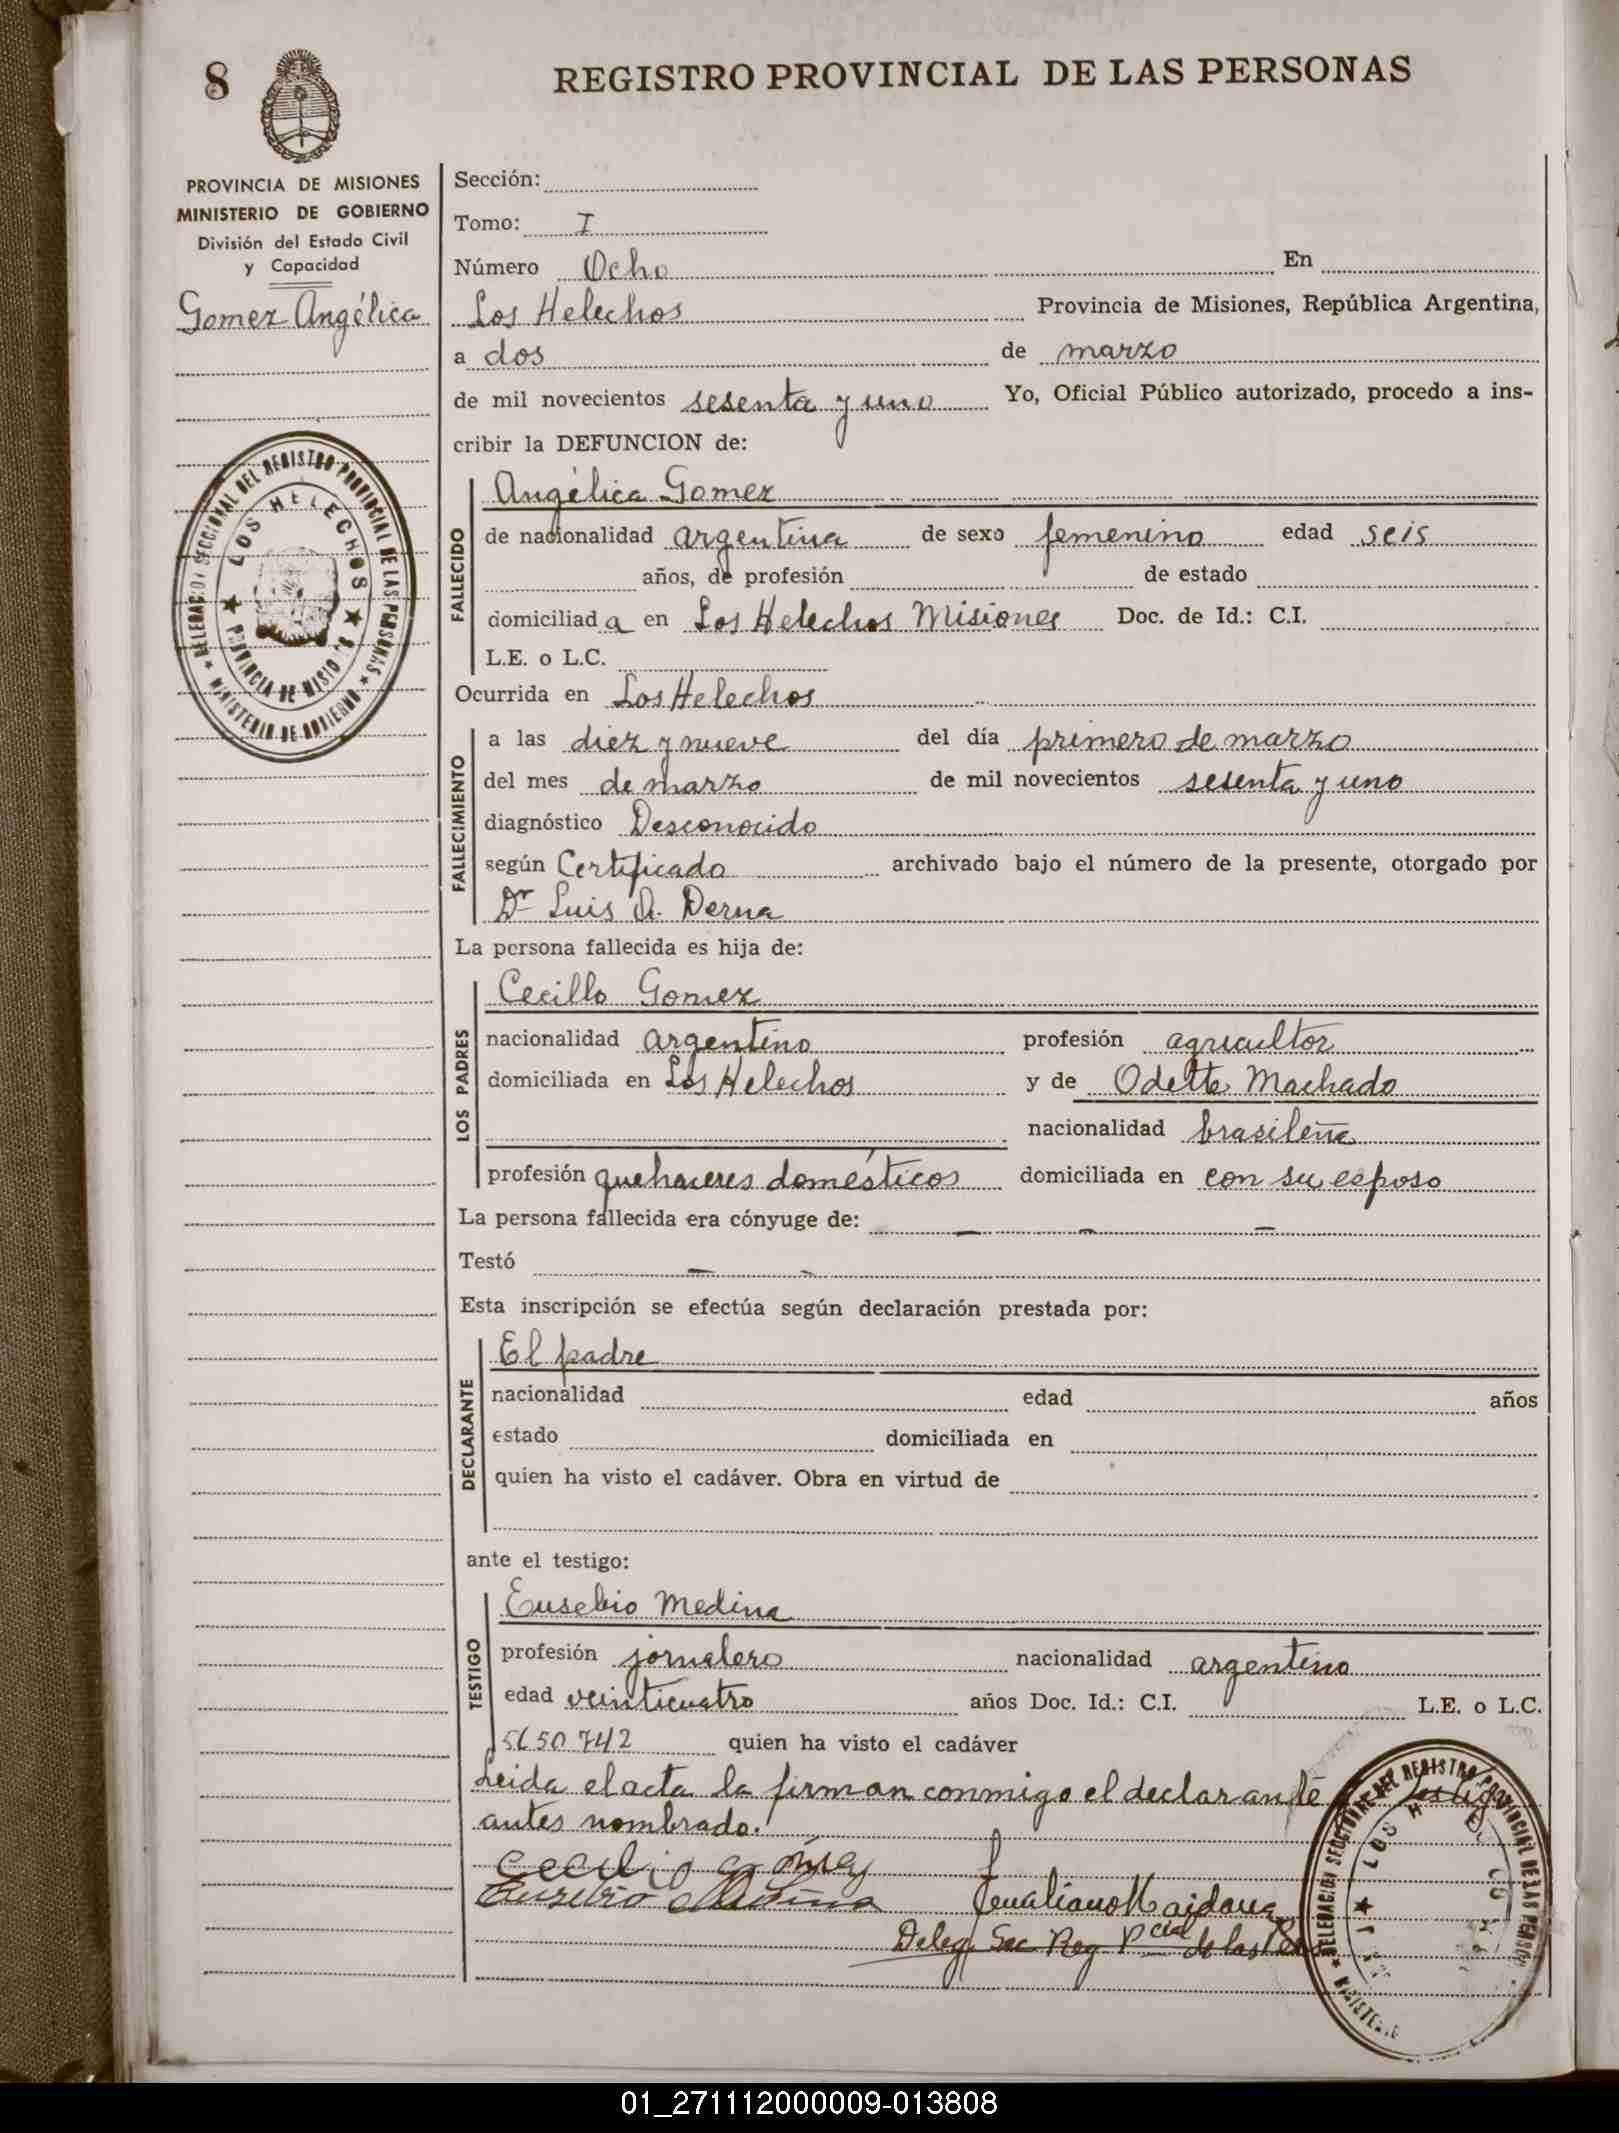 8
REGISTRO PROVINCIAL DE LAS PERSONAS
PROVINCIA DE MISIONES
MINISTERIO DE GOBIERNO
División del Estado Civil
y Capacidad
Gomez Angélica
DELEGACION SECCIONAL DEL REGISTRO PROVINCIAL DE LAS PERSONAS
★ MINISTERIO DE GOBIERNO ★
★ LOS HELECHOS ★
PROVINCIA DE MISIONES
Sección:
Tomo: I
Número Ocho En
Los Helechos Provincia de Misiones, República Argentina,
a dos de marzo
de mil novecientos sesenta y uno Yo, Oficial Público autorizado, procedo a ins-
cribir la DEFUNCION de:
FALLECIDO
Angélica Gomez
de nacionalidad argentina de sexo femenino edad seis
años, de profesión de estado
domiciliad a en Los Helechos Misiones Doc. de Id.: C.I.
L.E. o L.C.
Ocurrida en Los Helechos
FALLECIMIENTO
a las diez y nueve del día primero de marzo
del mes de marzo de mil novecientos sesenta y uno
diagnóstico Desconocido
según Certificado archivado bajo el número de la presente, otorgado por
Dr Luis A. Derna
La persona fallecida es hija de:
LOS PADRES
Cecillo Gomez
nacionalidad argentino profesión agricultor
domiciliada en Los Helechos y de Odette Machado
nacionalidad brasileña
profesión quehaceres domésticos domiciliada en con su esposo
La persona fallecida era cónyuge de: — — —
Testó — —
Esta inscripción se efectúa según declaración prestada por:
DECLARANTE
El padre
nacionalidad edad años
estado domiciliada en
quien ha visto el cadáver. Obra en virtud de
ante el testigo:
TESTIGO
Eusebio Medina
profesión jornalero nacionalidad argentino
edad veinticuatro años Doc. Id.: C.I. L.E. o L.C.
5650742 quien ha visto el cadáver
Leida el acta la firman conmigo el declarante testigo
antes nombrado.
Cecilio Gómez
Eusebio Medina Maidana
Deleg. Sec Reg Pcial de las
DELEGACION SECCIONAL DEL REGISTRO PROVINCIAL DE LAS PERSO
★ LOS H
MINISTERIO
01_271112000009-013808